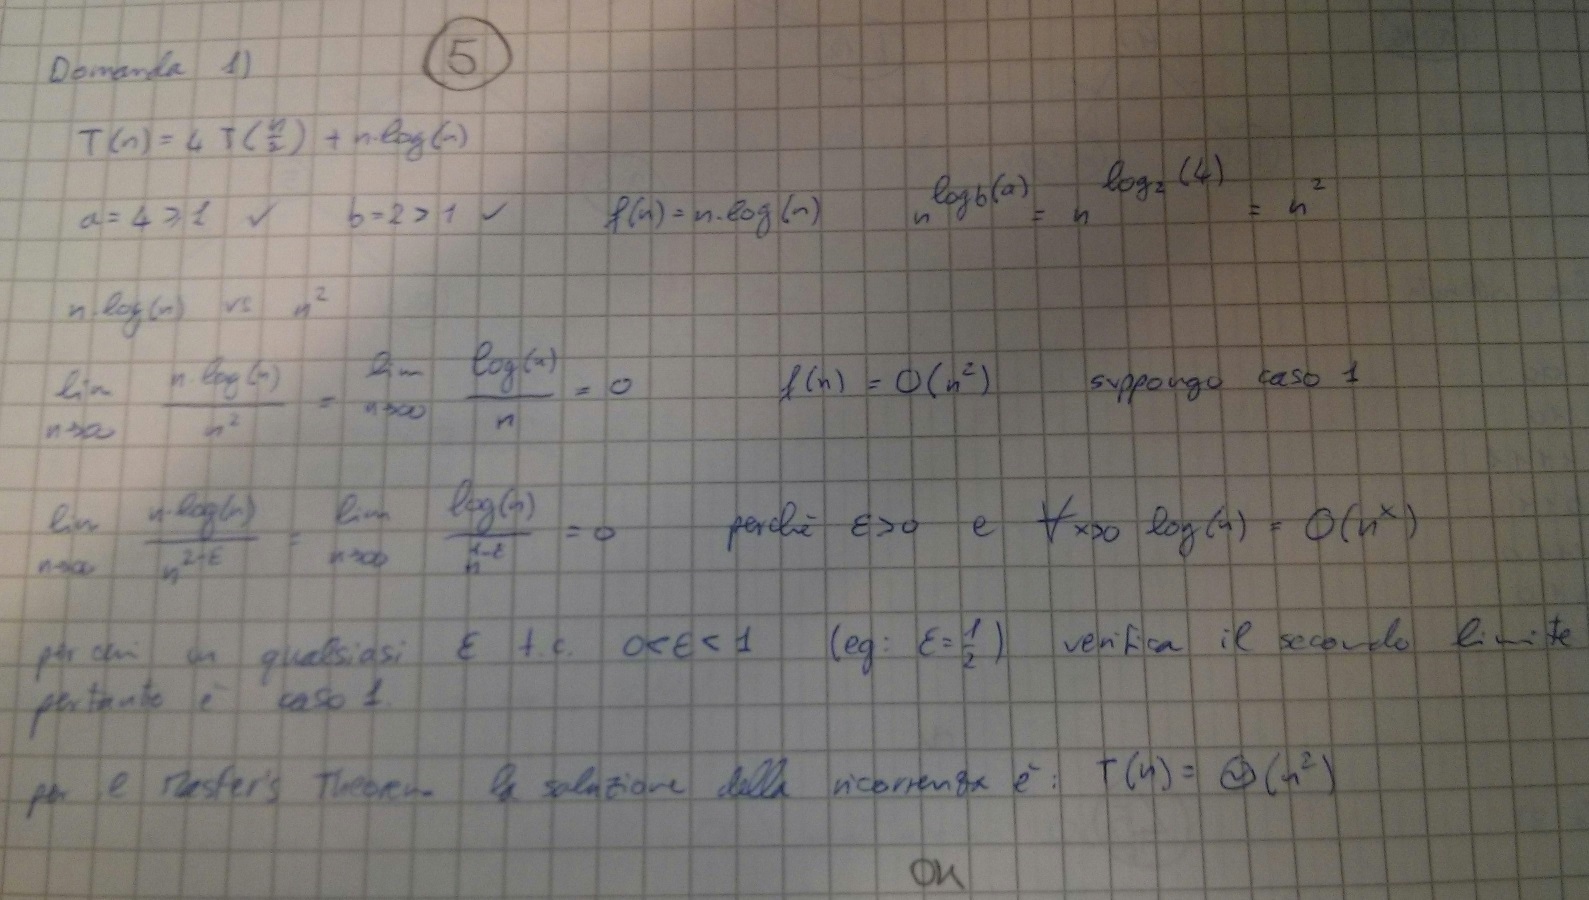 Domanda 1) 5
T(n) = 4 T(n/2) + n·log(n)
a = 4 ≥ 1 ✓ b = 2 > 1 ✓ f(n) = n·log(n) n^(log_b(a)) = n^(log_2(4)) = n^2
n·log(n) vs n^2
lim n→∞ n·log(n)/n^2 = lim n→∞ log(n)/n = 0 f(n) = O(n^2) suppongo caso 1
lim n→∞ n·log(n)/n^(2-ε) = lim n→∞ log(n)/n^(1-ε) = 0 perché ε>0 e ∀x>0 log(n) = O(n^x)
per cui un qualsiasi ε t.c. 0<ε<1 (eg: ε=1/2) verifica il secondo limite
pertanto è caso 1.
per il Master's Theorem la soluzione della ricorrenza è: T(n) = Θ(n^2)
OK